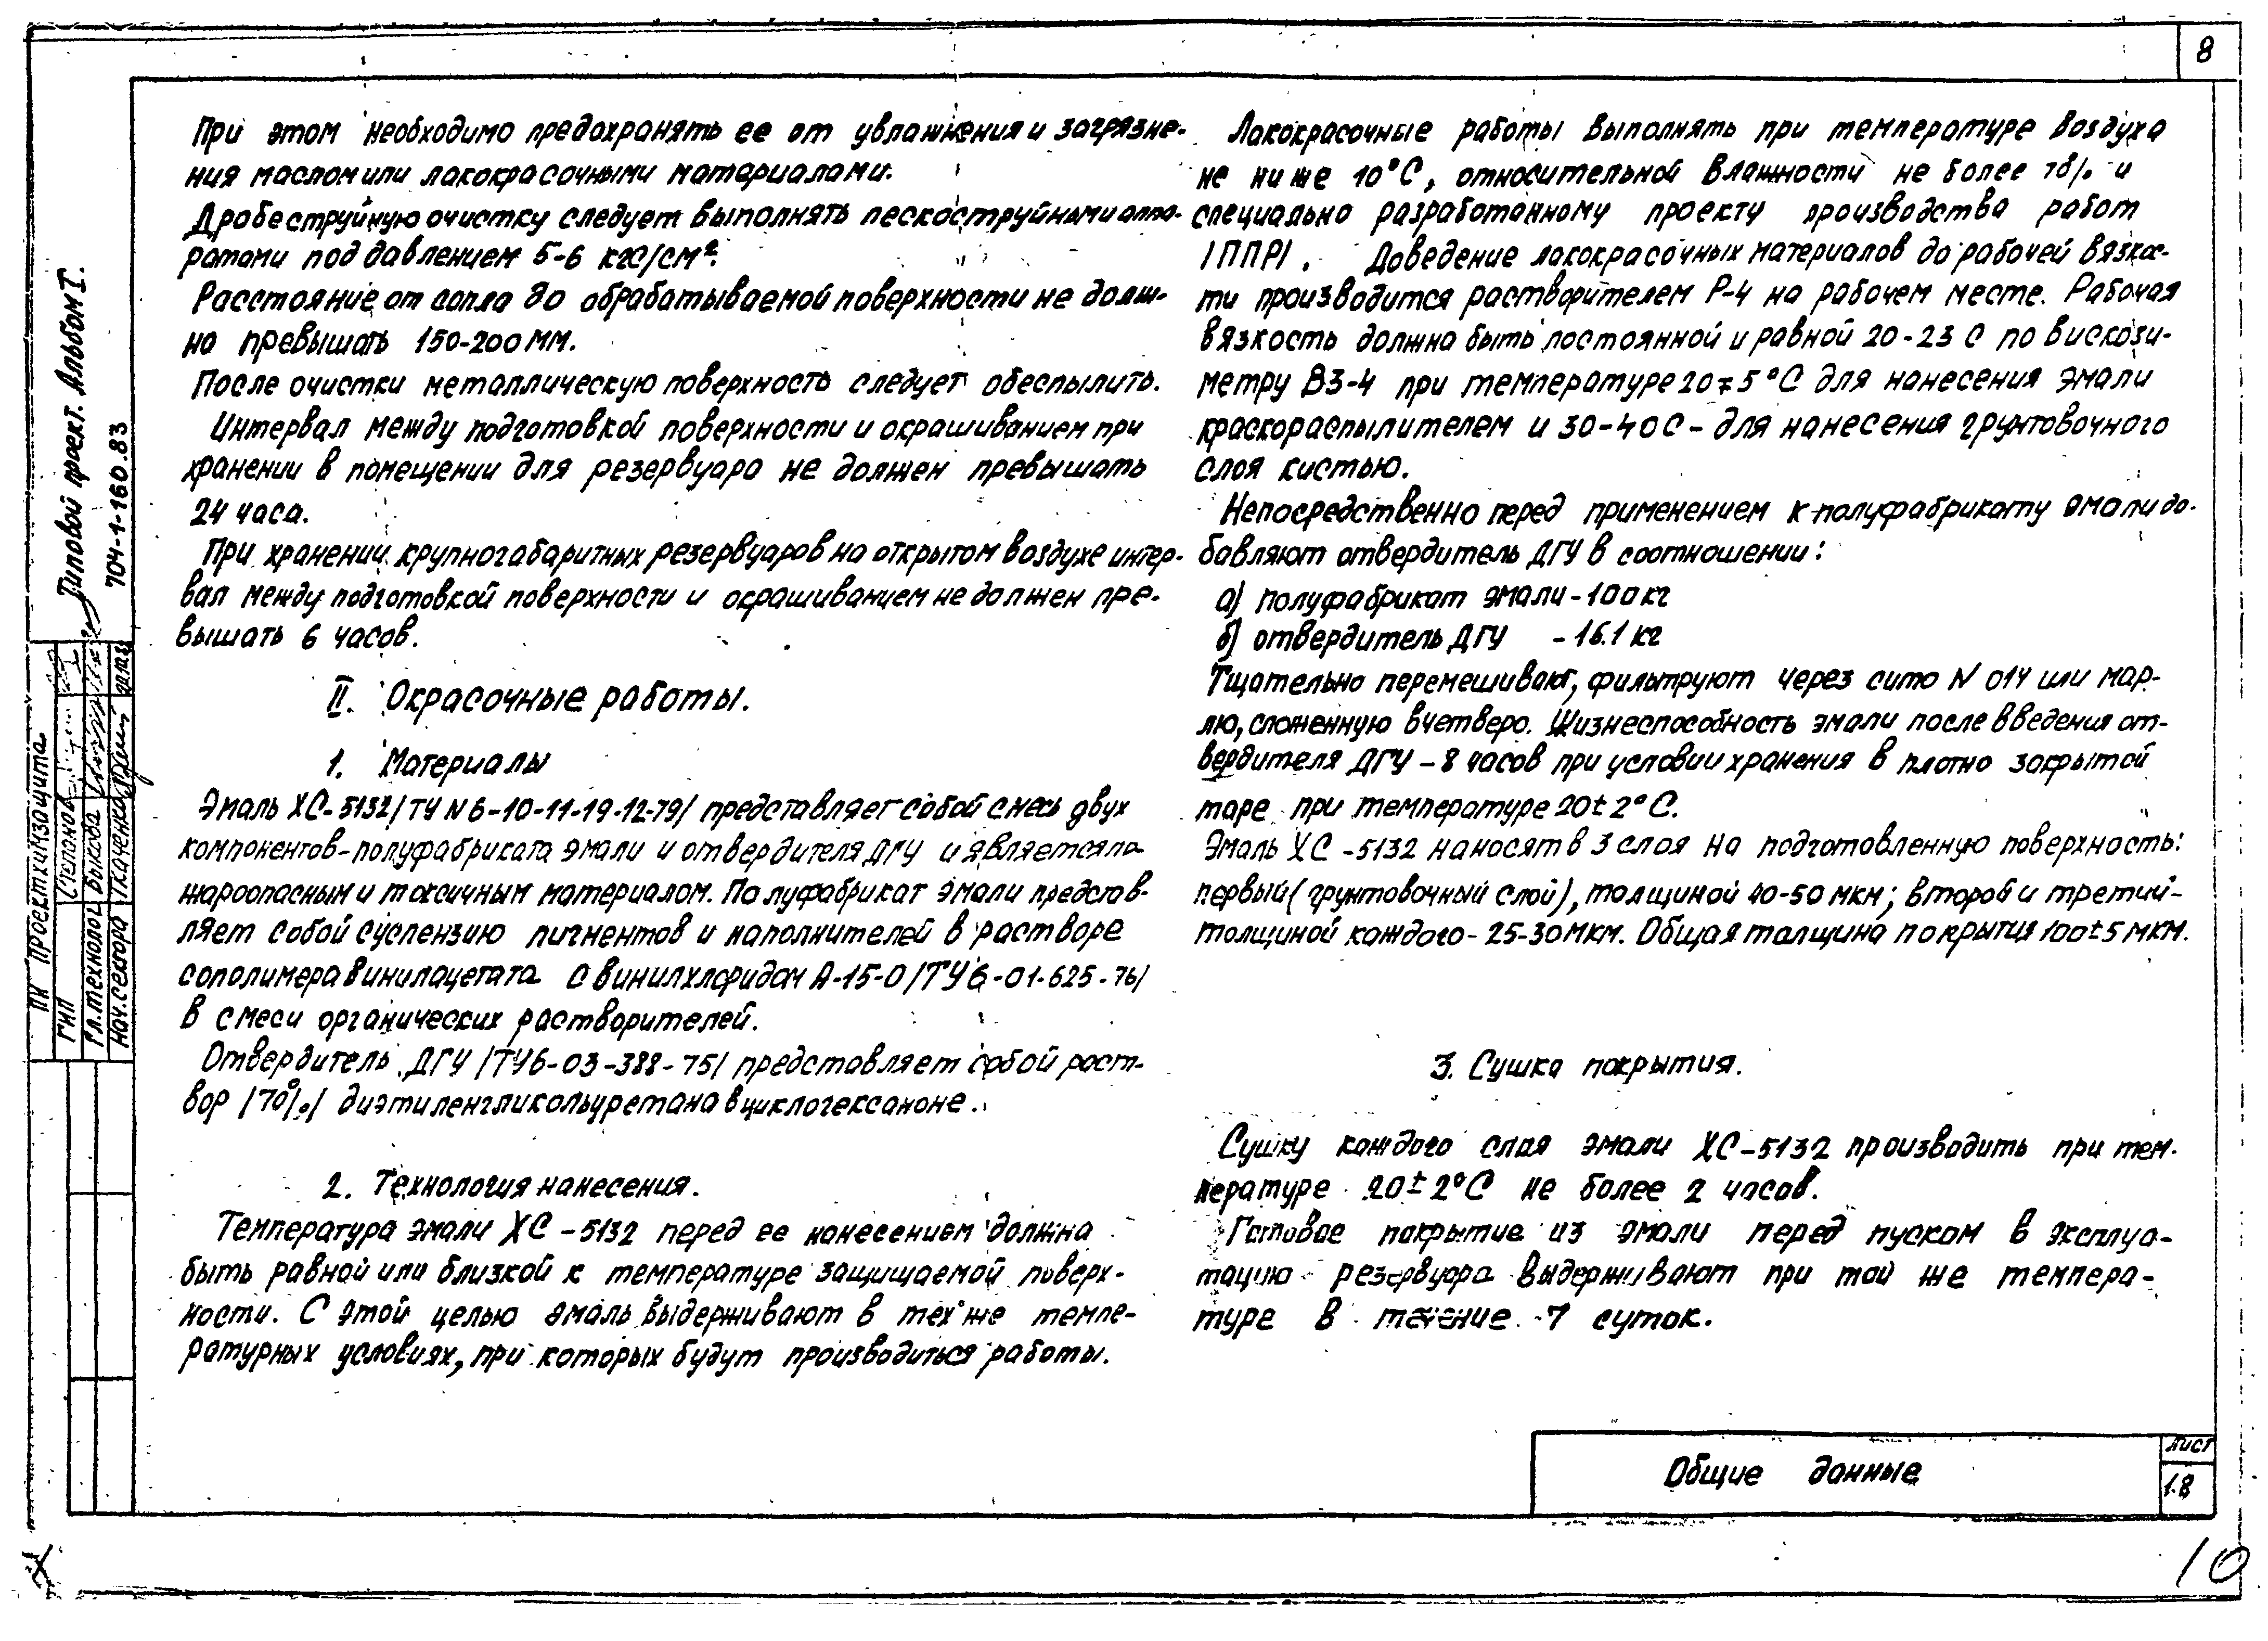 8
При этом необходимо предохранять ее от увлажнения и загрязне-
ния маслом или лакокрасочными материалами.
Дробеструйную очистку следует выполнять пескоструйными аппа-
ратами под давлением 5-6 кгс/см².
Расстояние от сопла до обрабатываемой поверхности не долж-
но превышать 150-200мм.
После очистки металлическую поверхность следует обеспылить.
Интервал между подготовкой поверхности и окрашиванием при
хранении в помещении для резервуара не должен превышать
24 часа.
При хранении крупногабаритных резервуаров на открытом воздухе интер-
вал между подготовкой поверхности и окрашиванием не должен пре-
вышать 6 часов.
II. Окрасочные работы.
1. Материалы
Эмаль ХС-5132/ТУ N6-10-11-19-12-79/ представляет собой смесь двух
компонентов-полуфабриката эмали и отвердителя ДГУ и является по-
жароопасным и токсичным материалом. Полуфабрикат эмали представ-
ляет собой суспензию пигментов и наполнителей в растворе
сополимера винилацетата с винилхлоридом А-15-0/ТУ6-01-625-76/
в смеси органических растворителей.
Отвердитель ДГУ /ТУ6-03-388-75/ представляет собой раст-
вор /70%/ диэтиленгликольуретана в циклогексаноне.
2. Технология нанесения.
Температура эмали ХС-5132 перед ее нанесением должна
быть равной или близкой к температуре защищаемой поверх-
ности. С этой целью эмаль выдерживают в тех же темпе-
ратурных условиях, при которых будут производиться работы.
Лакокрасочные работы выполнять при температуре воздуха
не ниже 10°С, относительной влажности не более % и
специально разработанному проекту производства работ
/ППР/. Доведение лакокрасочных материалов до рабочей вязкос-
ти производится растворителем Р-4 на рабочем месте. Рабочая
вязкость должна быть постоянной и равной 20-23 с по вискози-
метру ВЗ-4 при температуре 20∓5°С для нанесения эмали
краскораспылителем и 30-40с - для нанесения грунтовочного
слоя кистью.
Непосредственно перед применением к полуфабрикату эмали до-
бавляют отвердитель ДГУ в соотношении:
а) полуфабрикат эмали-100кг
б) отвердитель ДГУ - 16.1 кг
Тщательно перемешивают, фильтруют через сито N 014 или мар-
лю, сложенную вчетверо. Жизнеспособность эмали после введения от-
вердителя ДГУ - 8 часов при условии хранения в плотно закрытой
таре при температуре 20±2°С.
Эмаль ХС-5132 наносят в 3 слоя на подготовленную поверхность:
первый (грунтовочный слой), толщиной 40-50 мкм; второй и третий-
толщиной каждого-25-30мкм. Общая толщина покрытия 100±5мкм.
3. Сушка покрытия.
Сушку каждого слоя эмали ХС-5132 производить при тем-
пературе 20±2°С не более 2 часов.
Готовое покрытие из эмали перед пуском в эксплуа-
тацию резервуара выдерживают при той же темпера-
туре в течение 7 суток.
Общие данные
Лист
1.8
10
Типовой проект. Альбом I.
704-1-160.83
ПИ Проектхимзащита
ГИП Степанов
Гл.технолог Быкова
Нач.сектора Ткаченко